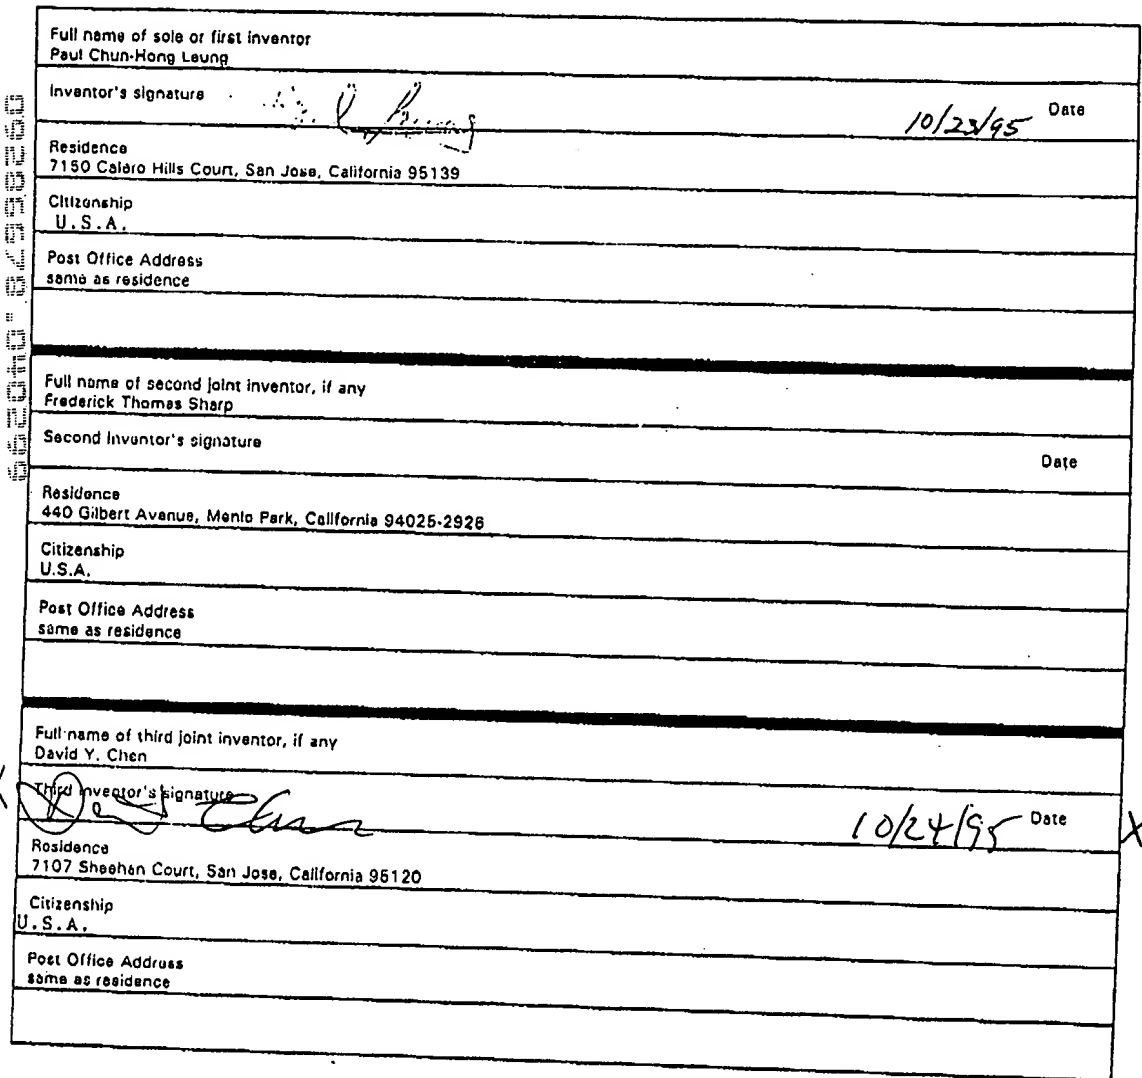 Full name of sole or first inventor
Paul Chun-Hong Leung
Inventor's signature
10/23/95 Date
Residence
7150 Calero Hills Court, San Jose, California 95139
Citizenship
U.S.A.
Post Office Address
same as residence
Full name of second joint inventor, if any
Frederick Thomas Sharp
Second Inventor's signature
Date
Residence
440 Gilbert Avenue, Menlo Park, California 94025-2926
Citizenship
U.S.A.
Post Office Address
same as residence
Full name of third joint inventor, if any
David Y. Chen
Third Inventor's signature
X David Chen 10/24/95 Date X
Residence
7107 Sheehan Court, San Jose, California 95120
Citizenship
U.S.A.
Post Office Address
same as residence